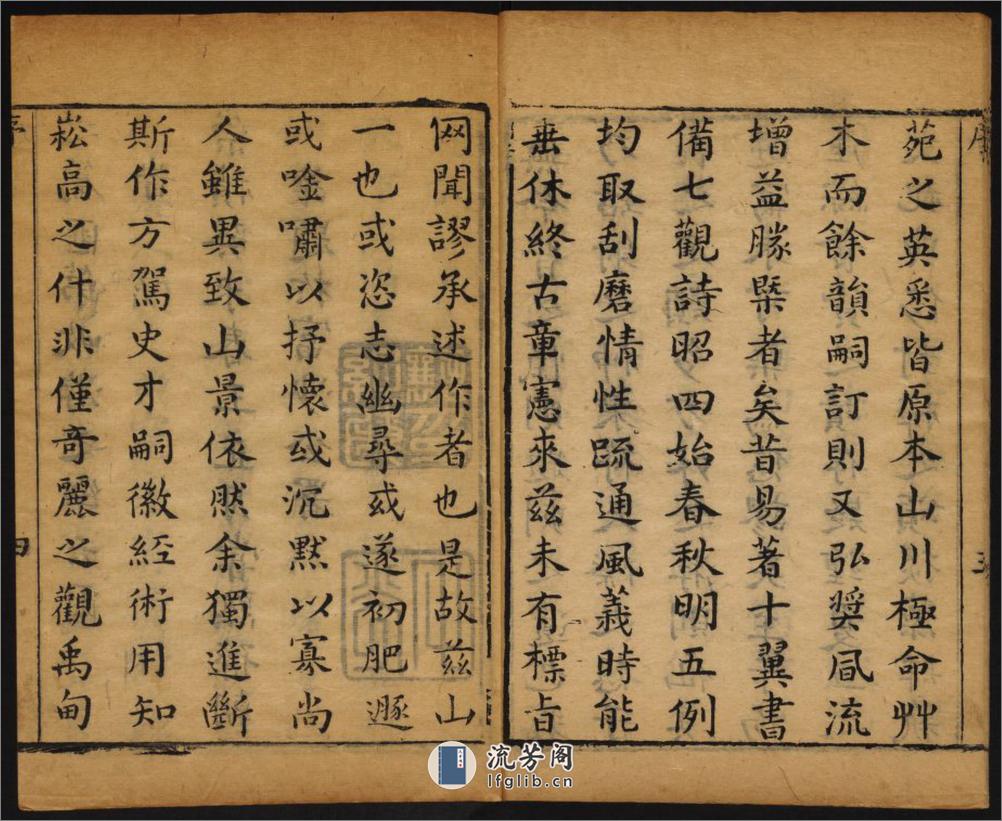 序
苑之英悉皆原本山川極命艸
木而餘韻嗣訂則又弘奬風流
增益勝槩者矣昔易著十翼書
備七觀詩昭四始春秋明五例
均取刮磨情性疏通風義時能
垂休終古章憲來兹未有標旨
网聞謬承述作者也是故兹山
一也或恣志幽尋或遂初肥遯
或唫嘯以抒懷或沉默以寡尚
人雖異致山景依然余獨進斷
斯作方駕史才嗣徽經術用知
崧高之什非僅奇麗之觀禹甸
四
流芳阁
lfglib.cn